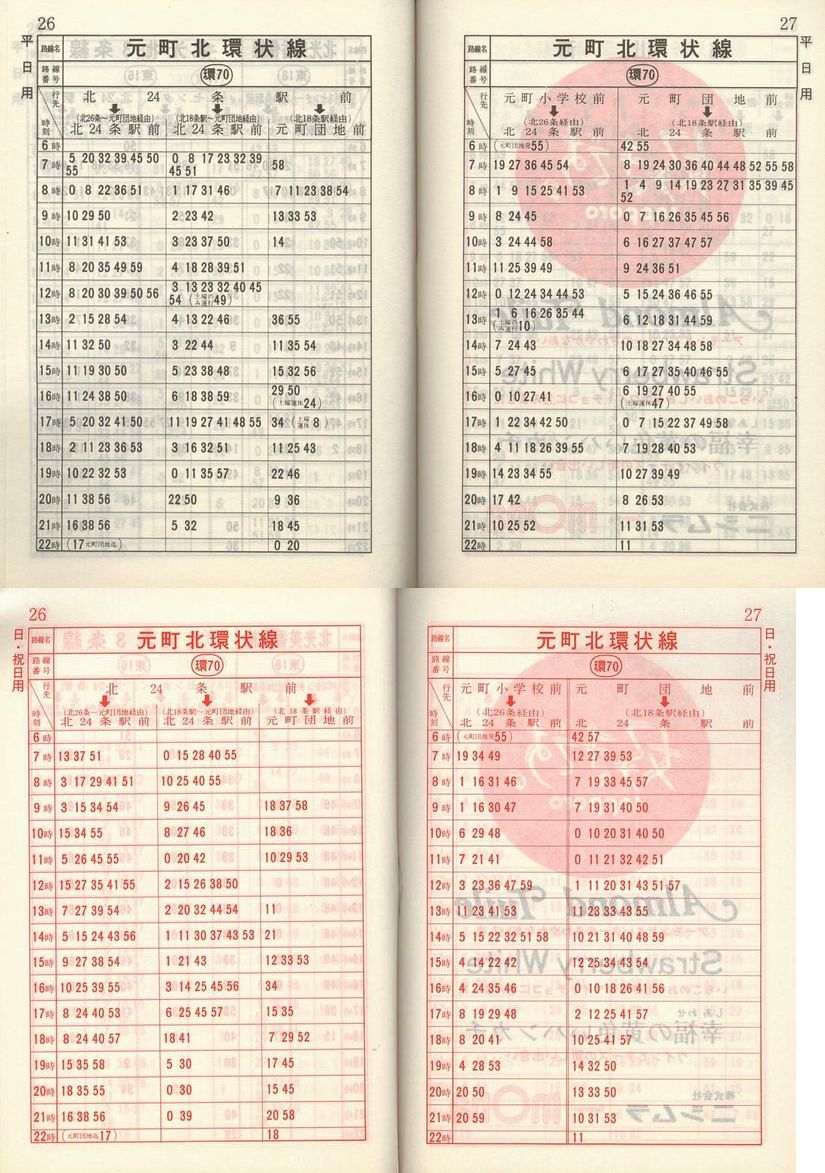 26
平日用
路線名 元町北環状線
路線番号 環70
行先 時刻
北24条駅前
(北26条~元町団地経由) 北24条駅前
(北18条駅~元町団地経由) 北24条駅前
(北18条駅経由) 元町団地前
6時
7時 5 20 32 39 45 50 55 | 0 8 17 23 32 39 45 51 | 58
8時 0 8 22 36 51 | 1 17 31 46 | 7 11 23 38 54
9時 10 29 50 | 2 23 42 | 13 33 53
10時 11 31 41 53 | 3 23 37 50 | 14
11時 8 20 35 49 59 | 4 18 28 39 51
12時 8 20 30 39 50 56 | 3 13 23 32 40 45 54 (土曜のみ運行49)
13時 2 15 28 54 | 4 13 22 46 | 36 55
14時 11 32 50 | 3 22 44 | 11 35 54
15時 11 19 30 50 | 5 23 38 48 | 15 32 56
16時 11 24 38 50 | 6 18 38 59 | 29 50 (土曜運休24)
17時 5 20 32 41 50 | 11 19 27 41 48 55 | 34 (土曜運休8)
18時 2 11 23 36 53 | 3 16 32 51 | 11 25 43
19時 10 22 32 53 | 0 11 35 57 | 22 46
20時 11 38 56 | 22 50 | 9 36
21時 16 38 56 | 5 32 | 18 45
22時 (17元町団地迄) | | 0 20
27
平日用
路線名 元町北環状線
路線番号 環70
行先 時刻
元町小学校前 (北26条経由) 北24条駅前
元町団地前 (北18条駅経由) 北24条駅前
6時 (元町団地発55) | 42 55
7時 19 27 36 45 54 | 8 19 24 30 36 40 44 48 52 55 58
8時 1 9 15 25 41 53 | 1 4 9 14 19 23 27 31 35 39 45 52
9時 8 24 45 | 0 7 16 26 35 45 56
10時 3 24 44 58 | 6 16 27 37 47 57
11時 11 25 39 49 | 9 24 36 51
12時 0 12 24 34 44 53 | 5 15 24 36 46 55
13時 1 6 16 26 35 44 (土曜のみ運行10) | 6 12 18 31 44 59
14時 7 24 43 | 10 18 27 34 48 58
15時 5 27 45 | 6 17 27 35 40 46 55
16時 0 10 27 41 | 6 19 27 40 55 (土曜運休47)
17時 1 22 34 42 50 | 0 7 15 22 37 49 58
18時 4 11 18 26 39 55 | 7 19 28 40 53
19時 14 23 34 55 | 10 27 39 49
20時 17 42 | 8 26 53
21時 10 25 52 | 11 31 53
22時 | 11
26
日・祝日用
路線名 元町北環状線
路線番号 環70
行先 時刻
北24条駅前
(北26条~元町団地経由) 北24条駅前
(北18条駅~元町団地経由) 北24条駅前
(北18条駅経由) 元町団地前
6時
7時 13 37 51 | 0 15 28 40 55
8時 3 17 29 41 51 | 10 25 40 55
9時 3 15 34 54 | 9 26 45 | 18 37 58
10時 15 34 55 | 8 27 46 | 18 36
11時 5 26 45 55 | 0 20 42 | 10 29 53
12時 15 27 35 41 55 | 2 15 26 38 50
13時 7 27 39 54 | 2 20 32 44 54 | 11
14時 5 15 24 43 56 | 1 11 30 37 43 53 | 21
15時 9 27 38 54 | 1 21 43 | 12 33 53
16時 10 25 39 55 | 3 14 25 45 56 | 34
17時 8 24 40 53 | 6 25 45 57 | 15 35
18時 8 24 40 57 | 18 41 | 7 29 52
19時 15 35 58 | 5 30 | 17 45
20時 18 35 55 | 0 30 | 15 45
21時 16 38 56 | 0 39 | 20 58
22時 (元町団地迄17) | | 18
27
日・祝日用
路線名 元町北環状線
路線番号 環70
行先 時刻
元町小学校前 (北26条経由) 北24条駅前
元町団地前 (北18条駅経由) 北24条駅前
6時 (元町団地発55) | 42 57
7時 19 34 49 | 12 27 39 53
8時 1 16 31 46 | 7 19 33 45 57
9時 1 16 30 47 | 7 19 31 40 50
10時 6 29 48 | 0 10 20 31 40 50
11時 7 21 41 | 0 11 21 32 42 51
12時 3 23 36 47 59 | 1 11 20 31 43 51 57
13時 11 23 41 53 | 11 23 33 43 55
14時 5 15 22 32 51 58 | 10 21 31 40 48 59
15時 4 14 22 42 | 12 25 34 43 54
16時 4 24 35 46 | 0 10 18 26 41 56
17時 8 19 29 48 | 2 12 25 41 57
18時 8 20 41 | 10 25 41 57
19時 4 28 53 | 14 32 50
20時 20 50 | 13 33 50
21時 20 59 | 10 31 53
22時 | 11